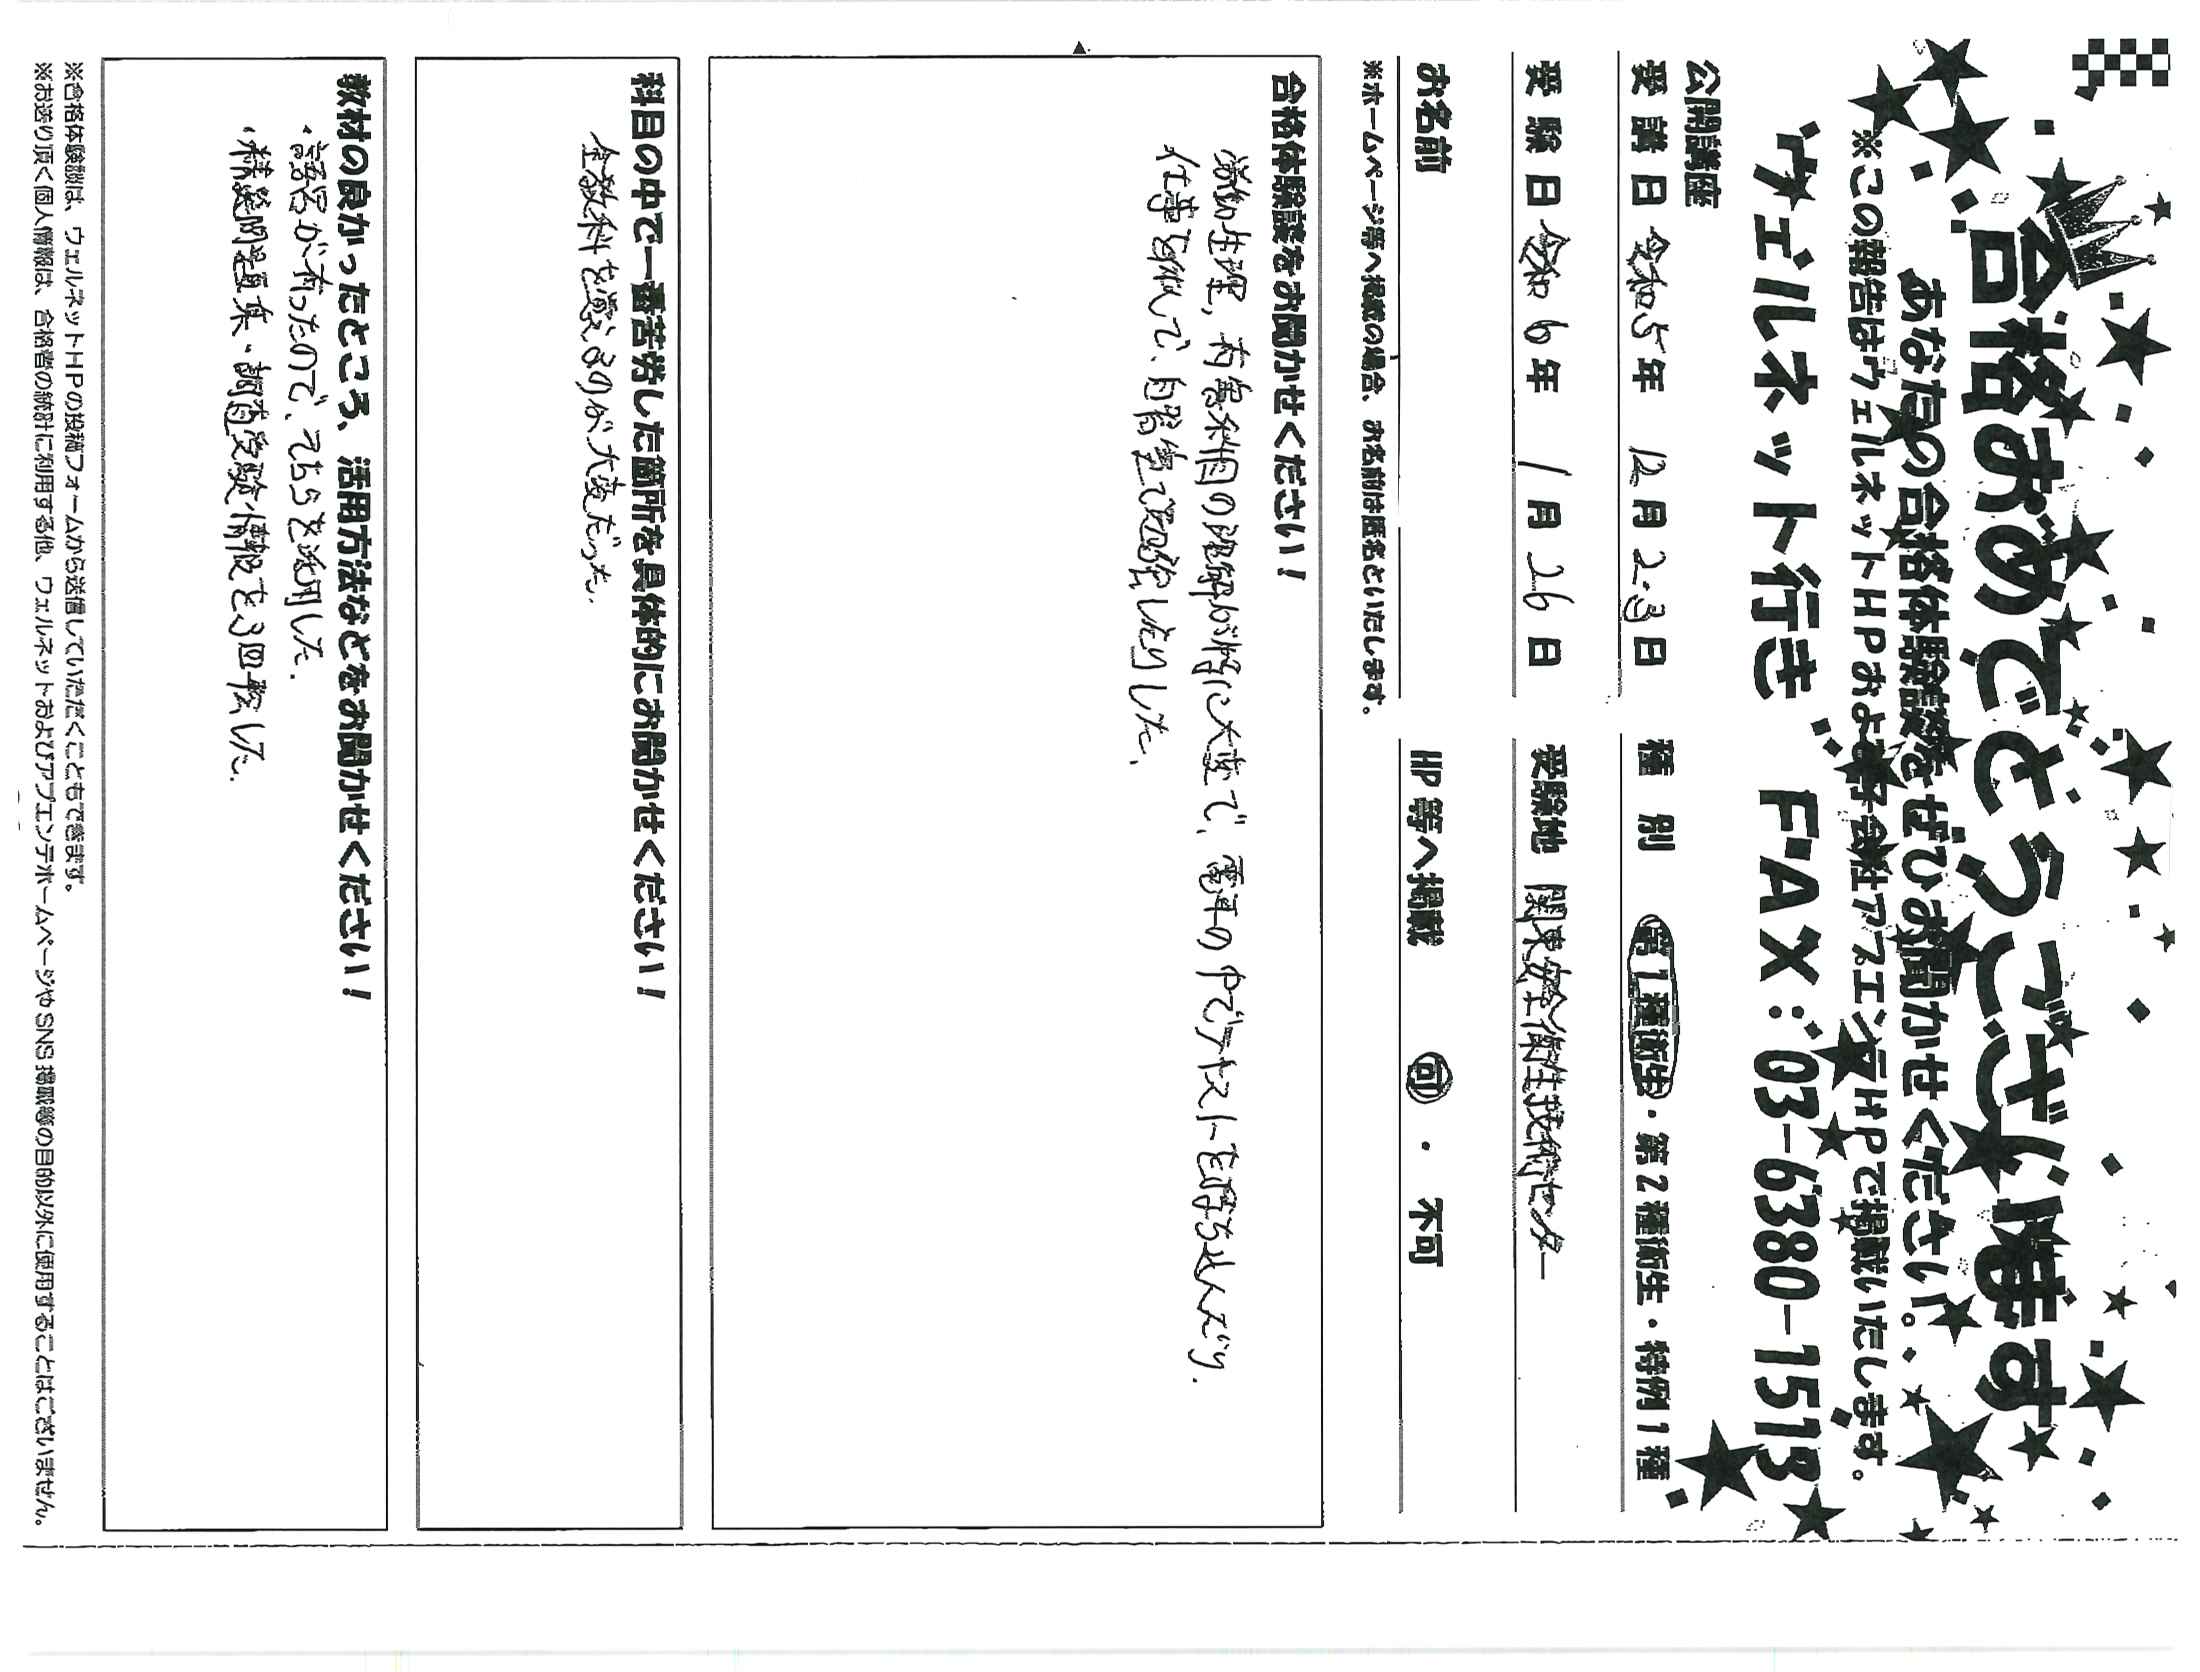 合格おめでとうございます
あなたの合格体験談をぜひお聞かせください。
※この報告はウェルネットHPおよび子会社アスエンテHPで掲載いたします。
ウェルネット行き FAX:03-6380-1513
公開講座
受講日 令和5年 12月2.3日 種別 第1種衛生・第2種衛生・特例1種
受験日 令和6年 1月26日 受験地 関東安全衛生技術センター
お名前 HP等へ掲載 可・不可
※ホームページ等へ掲載の場合、お名前は匿名といたします。
合格体験談をお聞かせください!
労働生理、有害業務の理解が特に大変で、電車の中でテキストを読み込んだり、
仕事を休んで、自習室で勉強したりした。
科目の中で一番苦労した箇所を具体的にお聞かせください!
全教科を覚えるのが大変だった。
教材の良かったところ、活用方法などをお聞かせください!
・語呂が有ったので、そちらを活用した。
・精選問題集・調査受験情報を3回転した。
※合格体験談は、ウェルネットHPの投稿フォームから送信していただくこともできます。
※お送り頂く個人情報は、合格者の統計に利用する他、ウェルネットおよびアプエンテホームページやSNS掲載等の目的以外に使用することはございません。